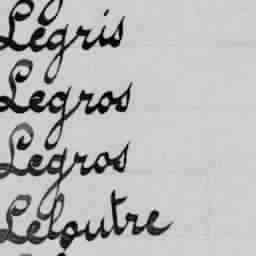 Legris
Legros
Legros
Leloutre